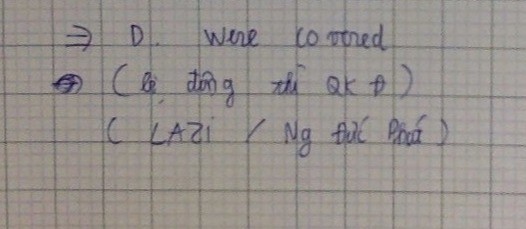 ⇒ D. Were covered
(bị động thì QK Đ)
( LAZi / Ng Đức Phát )